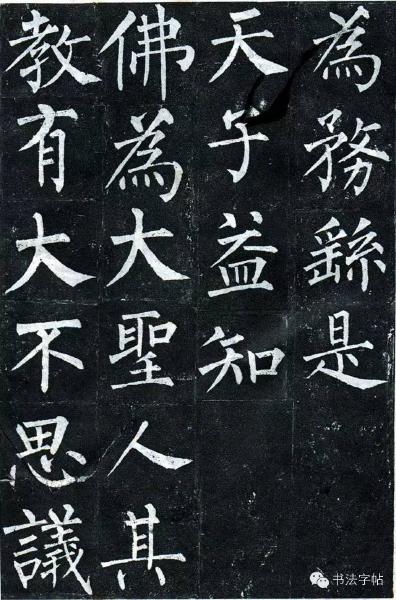 為務繇是
天子益知
佛為大聖人其
教有大不思議
书法字帖